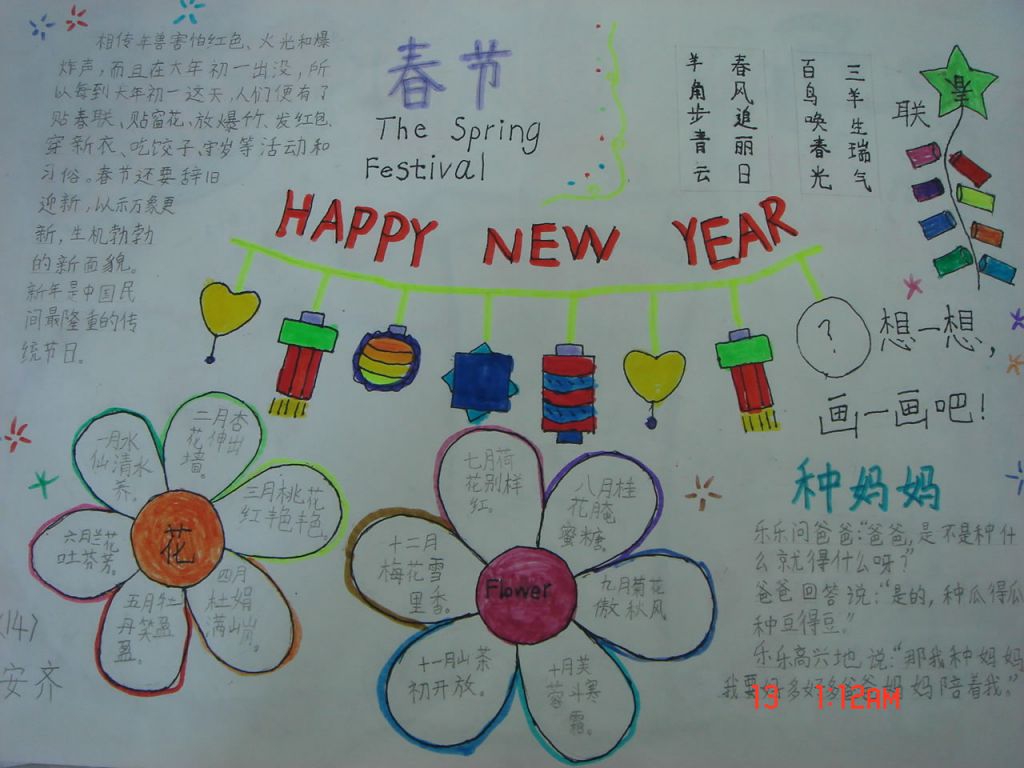 相传年兽害怕红色、火光和爆
炸声,而且在大年初一出没,所
以每到大年初一这天,人们便有了
贴春联、贴窗花、放爆竹、发红包、
穿新衣、吃饺子、守岁等活动和
习俗。春节还要辞旧
迎新,以示万象更
新,生机勃勃
的新面貌。
新年是中国民
间最隆重的传
统节日。
春节
The Spring
Festival
春风追丽日
羊角步青云
三羊生瑞气
百鸟唤春光
联
HAPPY NEW YEAR
?
想一想,
画一画吧!
花
一月水
仙清水
养。
二月杏
花伸出
墙。
三月桃花
红艳艳。
四月
杜娟
满山岗。
五月牡
丹笑盈
盈。
六月兰花
吐芬芳。
Flower
七月荷
花别样
红。
八月桂
花腌
蜜糖。
九月菊花
傲秋风
十月芙
蓉斗寒
霜。
十一月山茶
初开放。
十二月
梅花雪
里香。
种妈妈
乐乐问爸爸:“爸爸,是不是种什
么就得什么呀?”
爸爸回答说:“是的,种瓜得瓜
种豆得豆。”
乐乐高兴地说:“那我种妈妈
我要好多好多爸爸妈妈陪着我。”
(14)
安齐
13 1:12AM